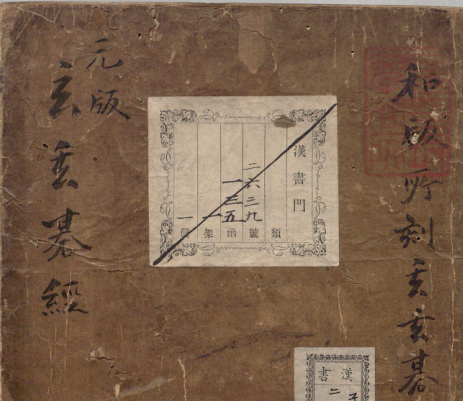 和版所刻玄玄碁
元版
玄玄碁經
漢書門
類
二六三九號
一三五函
一架
一冊
漢書
二